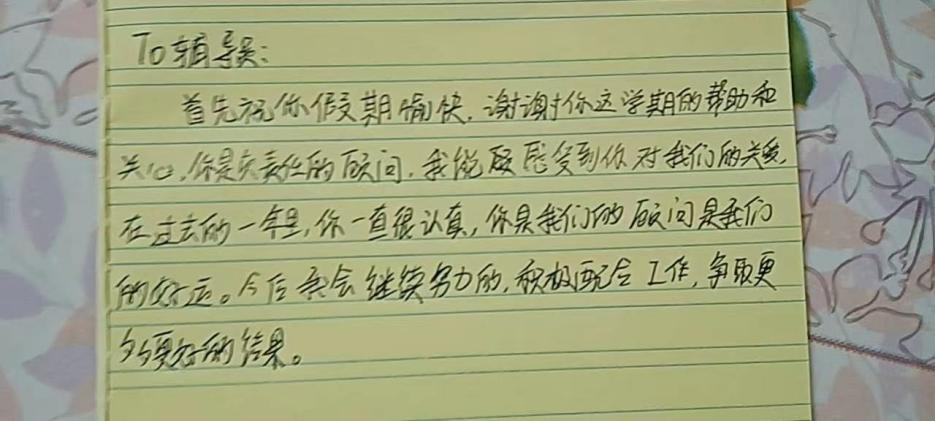 To辅导员:
首先祝你假期愉快,谢谢你这学期的帮助和
关心,你是负责任的顾问,我能够感受到你对我们的关爱,
在过去的一年里,你一直很认真,你是我们的顾问是我们
的好运。今后我会继续努力的,积极配合工作,争取更
多更好的结果。